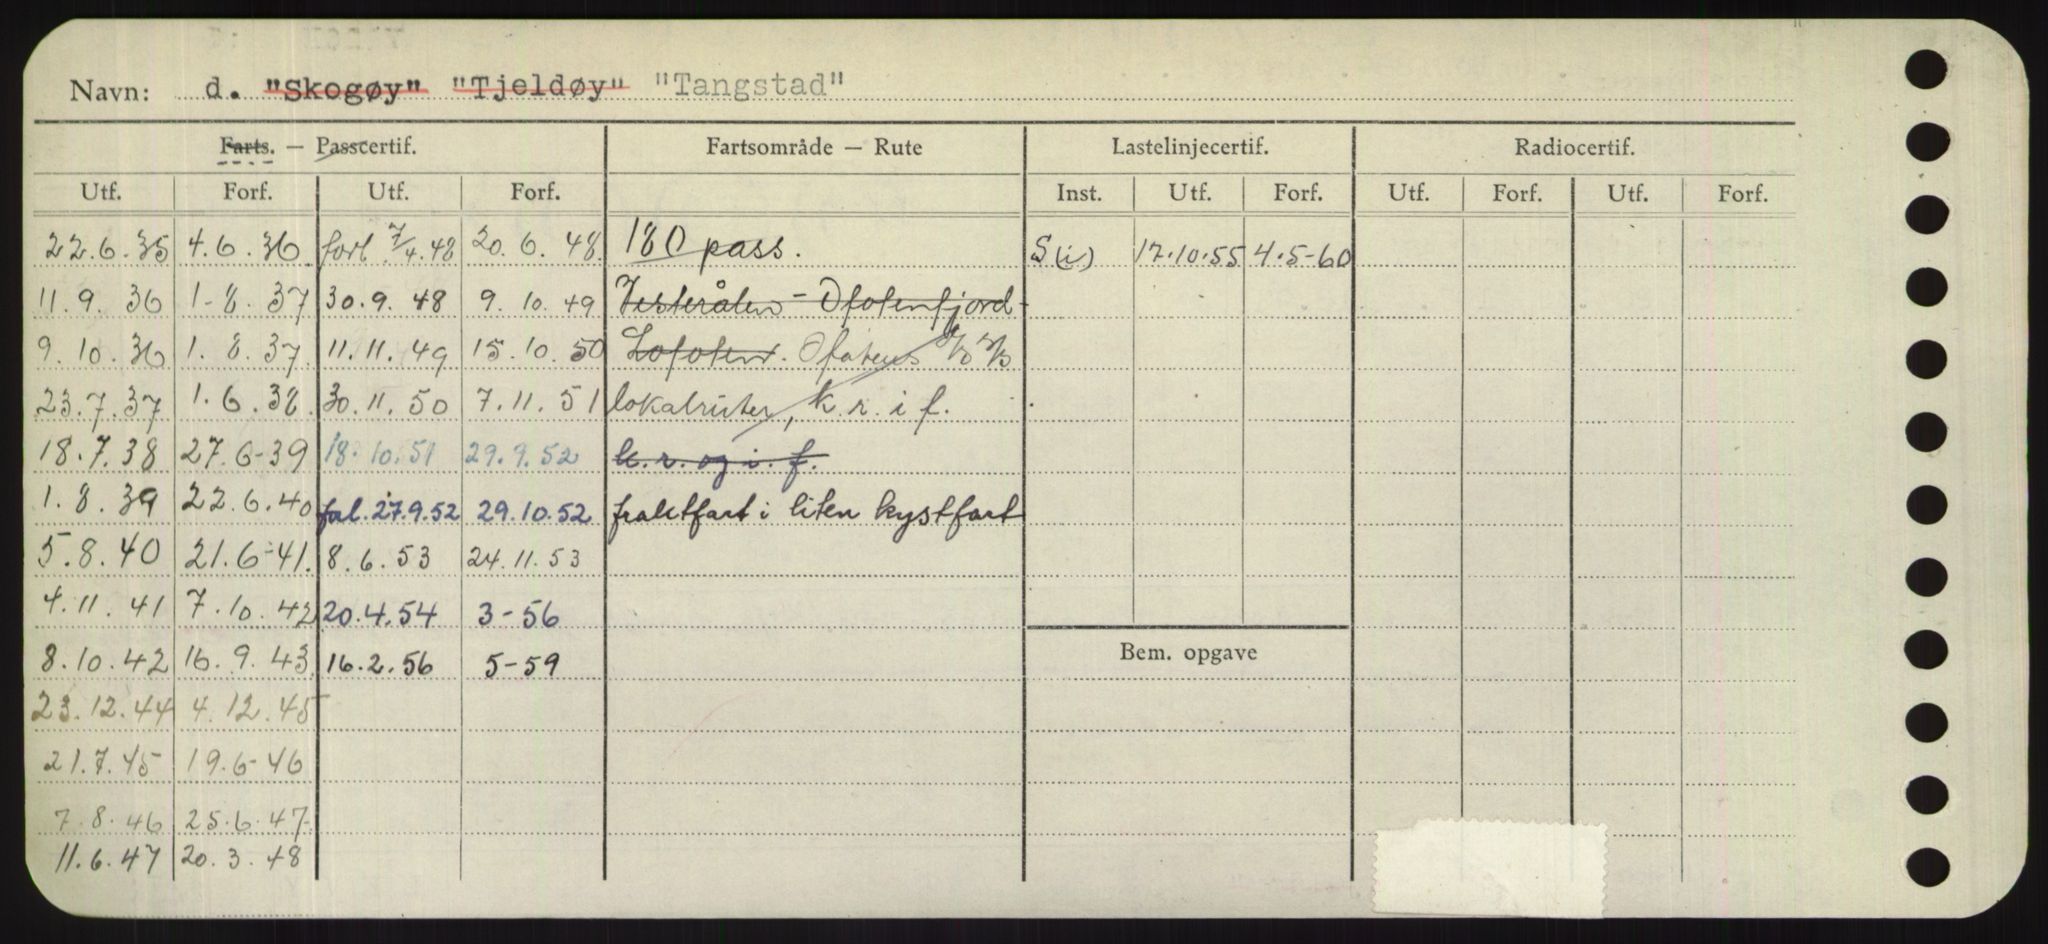 Navn: d. "Skogøy" "Tjeldøy" "Tangstad"
Farts. — Passcertif. Fartsområde — Rute Lastelinjecertif. Radiocertif.
Utf. Forf. Utf. Forf. Inst. Utf. Forf. Utf. Forf. Utf. Forf.
22.6.35 4.6.36 forl 7/4.48 20.6.48 180 pass. S(i) 17.10.55 4.5-60
11.9.36 1-8.37 30.9.48 9.10.49 Vesterålen - Ofotenfjord-
9.10.36 1.8.37 11.11.49 15.10.50 Lofoten. Ofotens D/S A/S
23.7.37 1.6.38 30.11.50 7.11.51 lokalruter, k.r.i f.
18.7.38 27.6-39 18.10.51 29.9.52 k.r. og i. f.
1.8.39 22.6.40 fal. 27.9.52 29.10.52 fraktfart i liten kystfart
5.8.40 21.6-41. 8.6.53 24.11.53
4.11.41 7.10.42 20.4.54 3-56
8.10.42 16.9.43 16.2.56 5-59 Bem. opgave
23.12.44 4.12.45
21.7.45 19.6-46
7.8.46 25.6.47
11.6.47 20.3.48